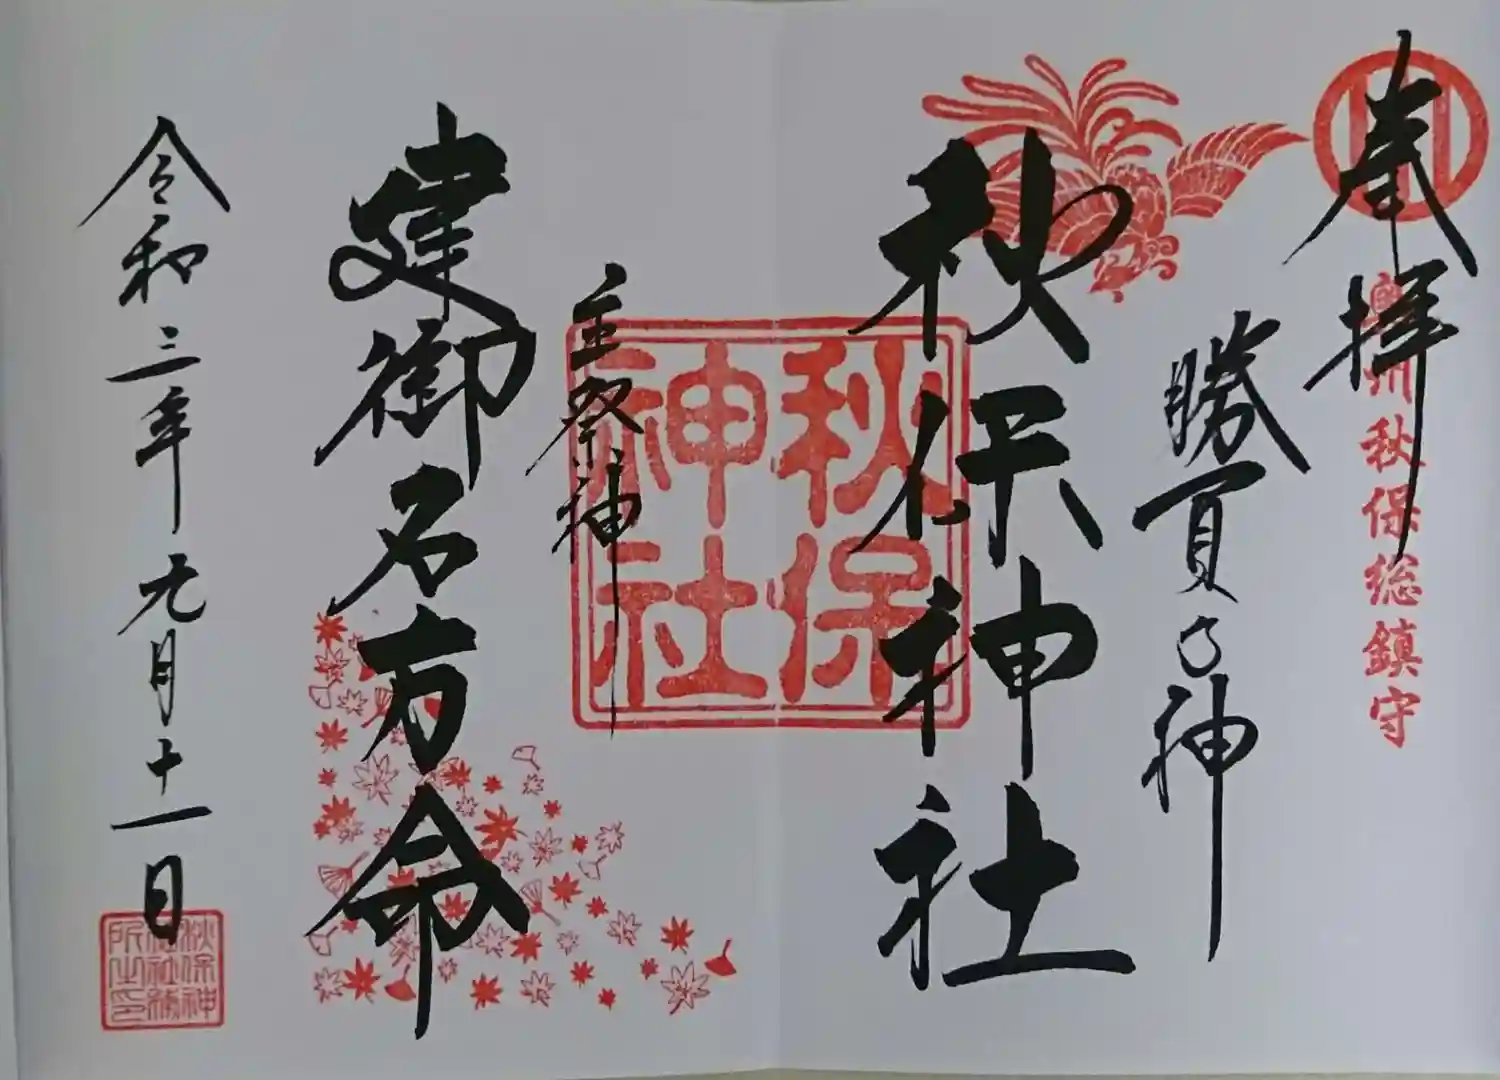 奉拝
奥州秋保総鎮守
勝負の神
秋保神社
秋保
神社
主祭神
建御名方命
令和三年元月十一日